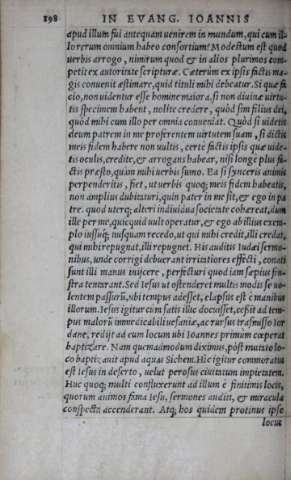 198 IN EVANG. IOANNIS
apud illum fui antequam uenirem in mundum, qui cum il-
lo rerum omnium habeo consortium? Modestum est quod
uerbis arrogo, nimirum quod & in alios plurimos com-
petit ex autoritate scripturæ. Cæterum ex ipsis factis ma-
gis conuenit æstimare, quid tituli mihi debeatur. Si quæ fa
cio, non uidentur esse homine maiora, si non diuinæ uirtu-
tis specimen habent, nolite credere, quòd sim filius dei,
quòd mihi cum illo per omnia conueniat. Quòd si uidetis
deum patrem in me proferentem uirtutem suam, si dictis
meis fidem habere non uultis, certè factis ipsis quæ uide-
tis oculis, credite, & arrogans habear, nisi longè plus fa-
ctis præsto, quàm mihi uerbis sumo. Ea si synceris animis
perpenderitis, fiet, ut uerbis quoq; meis fidem habeatis,
non amplius dubitaturi, quin pater in me sit, & ego in pa
tre. quod uterq; alteri indiuidua societate cohæreat, dum
ille per me, quicquid uult operatur, & ego ab illius exem-
plo iussuq; nusquam recedo, ut qui mihi credit, illi credat,
qui mihi repugnat, illi repugnet. His auditis Iudæi sermo-
nibus, unde corrigi debuerant irritatiores effecti, conati
sunt illi manus inijcere, perfecturi quod iam sæpius fru-
stra tentarant. Sed Iesus ut ostenderet multis modis se uo-
lentem passurum, ubi tempus adesset, elapsus est è manibus
illorum. Iesus igitur cum satis illic docuisset, cessit ad tem-
pus malorum immedicabili uesaniæ, ac rursus transmisso Ior
dane, redijt ad eum locum ubi Ioannes primum cœperat
baptizare. Nam quemadmodum diximus, pòst mutato lo-
co baptizauit apud aquas Sichem. Hic igitur commoratus
est Iesus in deserto, uelut perosus ciuitatum impietatem.
Huc quoq; multi confluxerunt ad illum è finitimis locis,
quorum animos fama Iesu, sermones auditi, & miracula
conspecta accenderant. Atq; hos quidem protinus ipse
locus